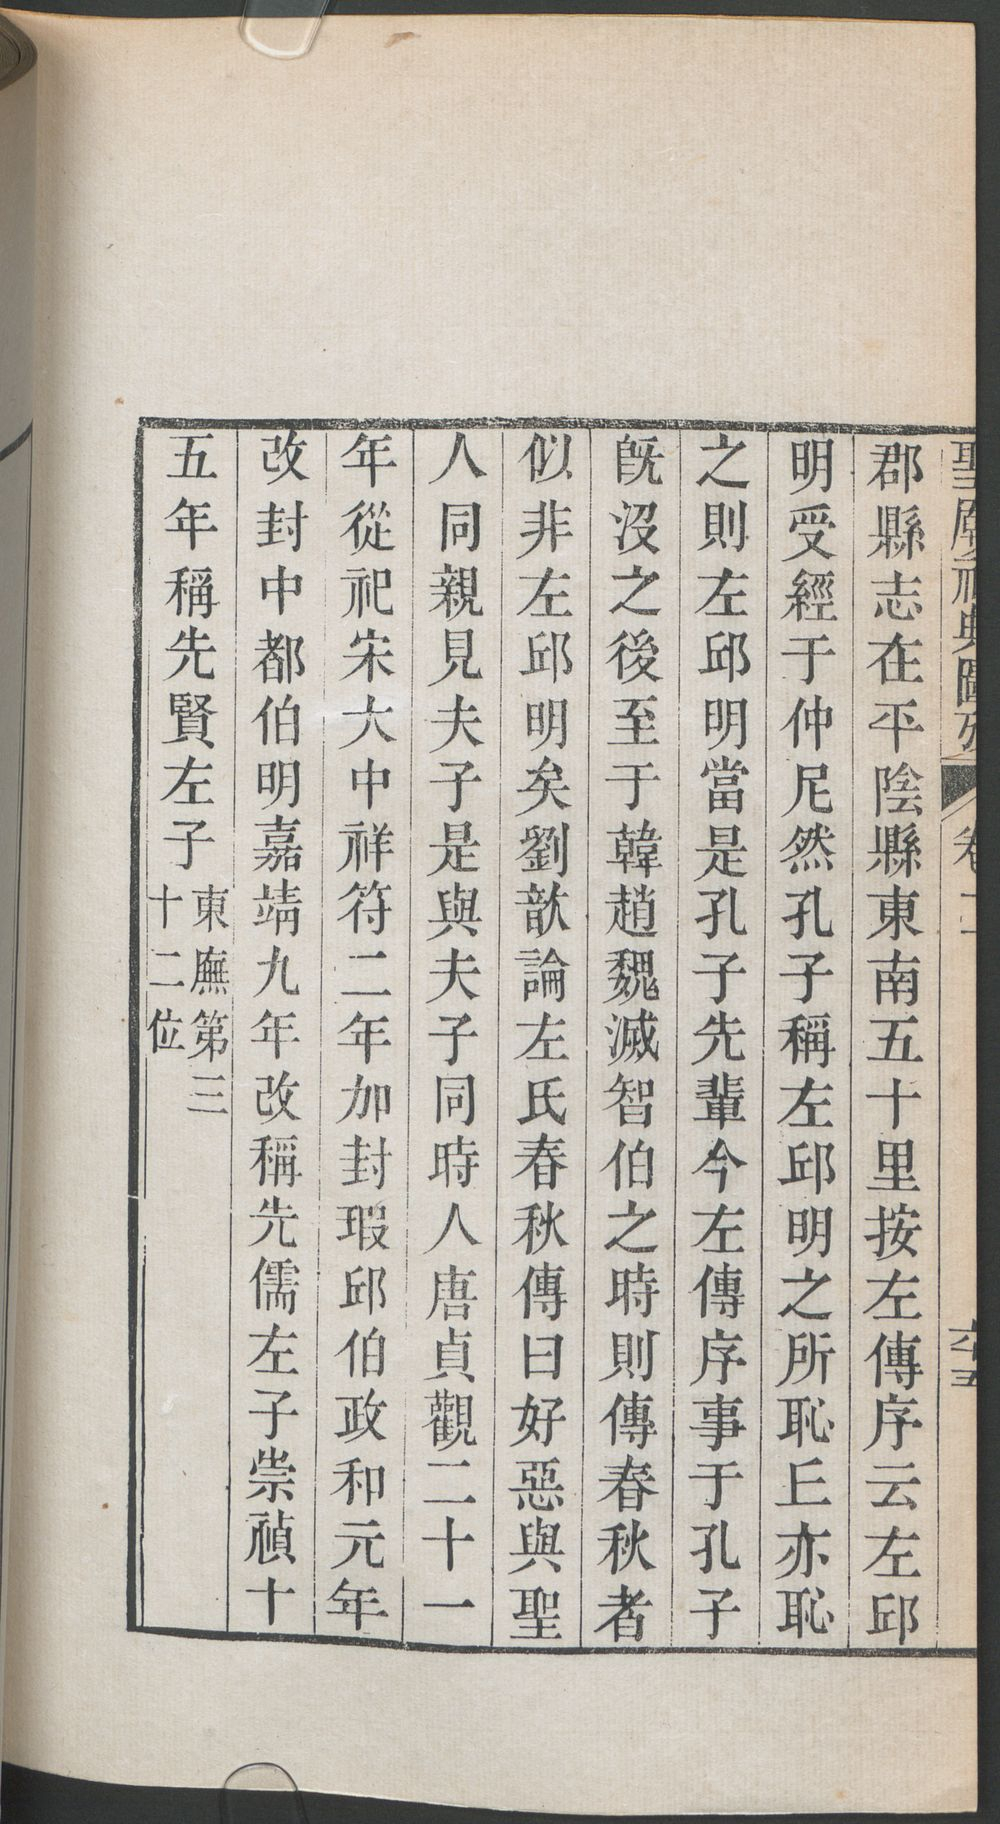 聖廟祀典圖攷
卷二
六十五
郡縣志在平陰縣東南五十里按左傳序云左邱
明受經于仲尼然孔子稱左邱明之所恥丘亦恥
之則左邱明當是孔子先輩今左傳序事于孔子
旣沒之後至于韓趙魏滅智伯之時則傳春秋者
似非左邱明矣劉歆論左氏春秋傳曰好惡與聖
人同親見夫子是與夫子同時人唐貞觀二十一
年從祀宋大中祥符二年加封瑕邱伯政和元年
改封中都伯明嘉靖九年改稱先儒左子崇禎十
五年稱先賢左子
東廡第三
十二位